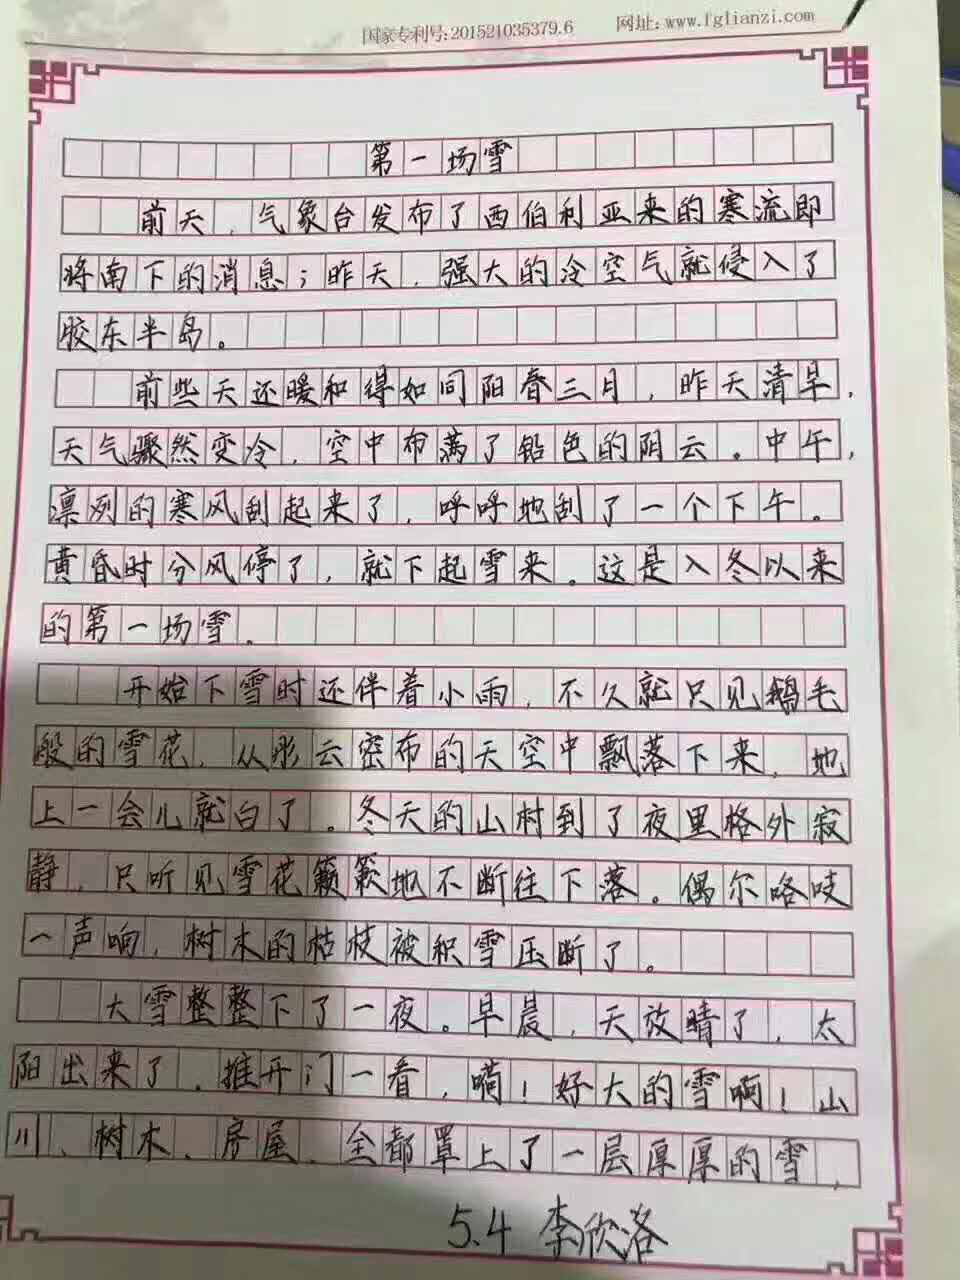 国家专利号:201521035379.6 网址:www.fglianzi.com
第一场雪
前天，气象台发布了西伯利亚来的寒流即
将南下的消息；昨天，强大的冷空气就侵入了
胶东半岛。
前些天还暖和得如同阳春三月，昨天清早，
天气骤然变冷，空中布满了铅色的阴云。中午，
凛冽的寒风刮起来了，呼呼地刮了一个下午。
黄昏时分风停了，就下起雪来。这是入冬以来
的第一场雪。
开始下雪时还伴着小雨，不久就只见鹅毛
般的雪花，从彤云密布的天空中飘落下来，地
上一会儿就白了。冬天的山村到了夜里格外寂
静，只听见雪花簌簌地不断往下落。偶尔咯吱
一声响，树木的枯枝被积雪压断了。
大雪整整下了一夜。早晨，天放晴了，太
阳出来了，推开门一看，嗬！好大的雪啊！山
川、树木、房屋、全都罩上了一层厚厚的雪，
5.4 李欣洛